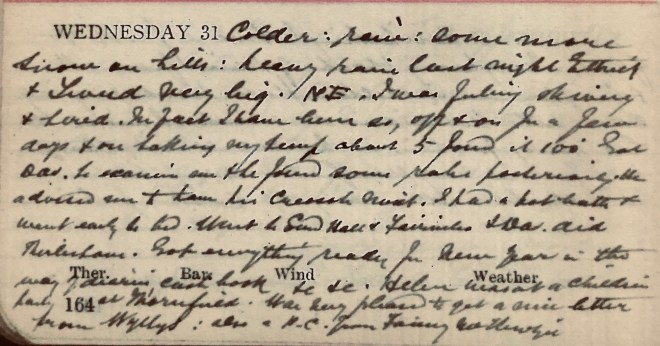 WEDNESDAY 31 Colder : rain : some more
snow on hills : heavy rain last night Ettrick
& Tweed very big. NE. I was feeling shivery
& tired. In fact I have been so, off & on for a few
days & on taking my temp about 5 found it 100 Got
Dav. to examine me & he found some rales posteriorly. He
advised me to have his Creosote mist. I had a hot bath &
went early to bed. Went to Gord Hall & Fairnilee & Dav. did
Got everything ready for New Year in the
way of diaries, cash book &c &c. Helen was at a Children
Ther. Bar. Wind Weather
party 164 at Thornfield. Was very pleased to get a nice letter
from Wyllys : also a P.C. from Fanny